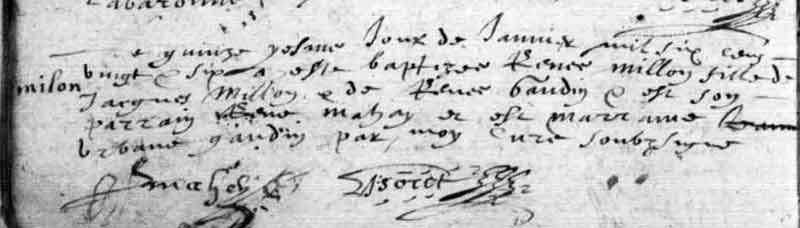 Le quinze yesme Jour de Janvier mil six cens
milon
vingt & six a este baptizee Renee Millon fille de
Jacques Millon & de Renee Gaudin & est son
parrain Rene mahay et est marraine
Urbane gaudin par moy Cure soubzsigne